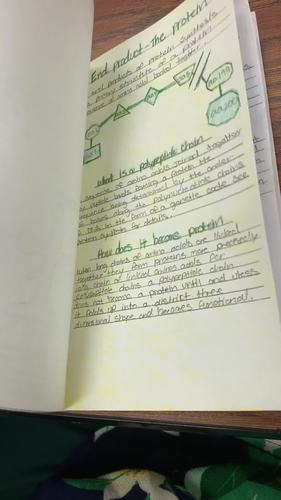 End product - The protein
end product of protein synthesis
a primary structure of a protein
sequence of amino acid bonded together
aa 5
aa 199
aa 200
What is a Polypeptide Chain
sequence of amino acids joined together
by peptide bonds forming a protein the
sequence being determined by the order
of bases along the polynucleotide chains
DNA in the form of a genetic code see
protein synthesis for details.
How does it become protein
When long chains of amino acids are linked
together they form proteins more precisely
chain of linked amino acids for
polypeptide chains a polypeptide chain
does not become a protein until and unless
it folds up into a distrupt three
dimensional shape and becomes functional.